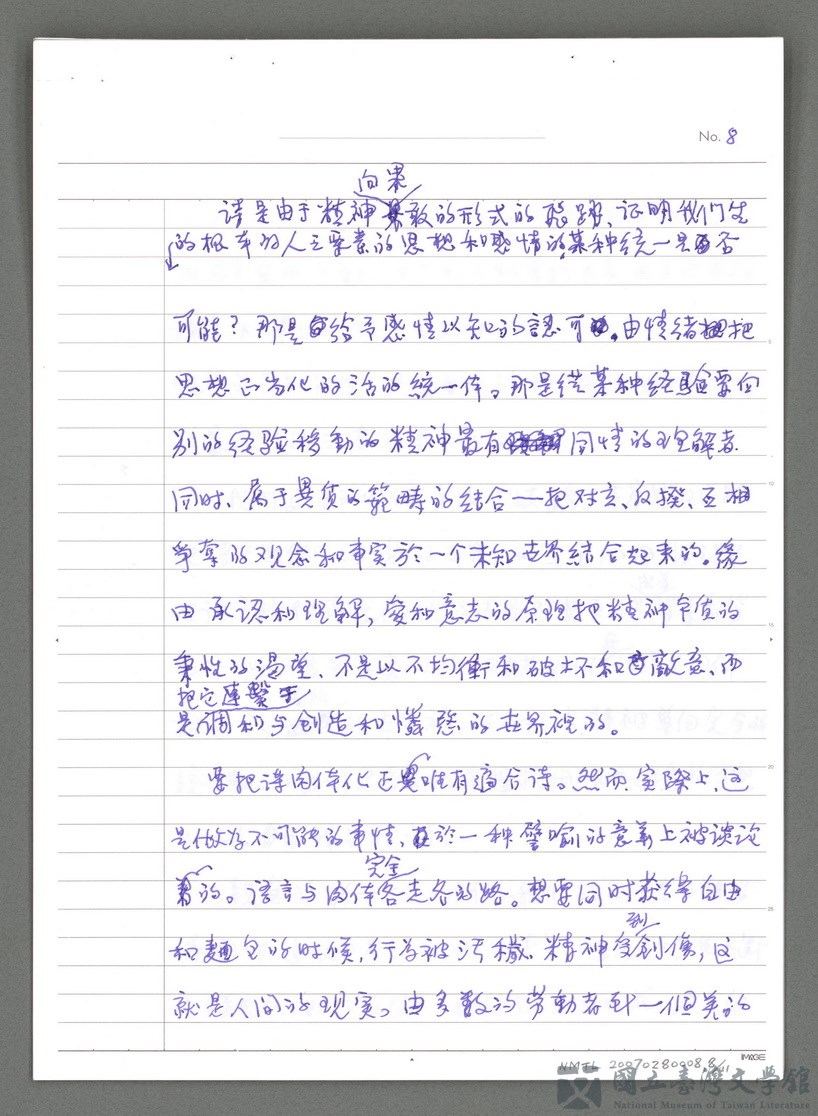 No. 8
向果
詩是由于精神果敢的形式的飛躍、证明我们生
的根本的人三要素的思想和感情的某种統一是否
可能？那是給予感情以知的認可，由情绪把
思想正当化的活的統一体。那是從某种经験要向
别的经驗移動的精神最有同情的理解者
同时、属于異質的範疇的結合一一把对立、反撥、互相
争奪的观念和事实於一个未知世界結合起来的。缘
由承認和理解，愛和意志的原理把精神本質的
秉性的渴望、不是以不均衡和破坏和敵意、而
把它連繫于
是調和与創造和憐愍的世界裡的。
要把詩肉体化还是唯有適合詩。然而実際上、这
是做为不可能的事情、於一种譬喻的意義上被談论
完全
着的。語言与肉体各走各的路。想要同时获得自由
到
和麺包的时候，行为被污穢、精神受創傷，这
就是人间的现実。由多数的劳動者对一個美的
IMAGE
NMTL 20070280008.8/11
國立臺灣文學館
National Museum of Taiwan Literature